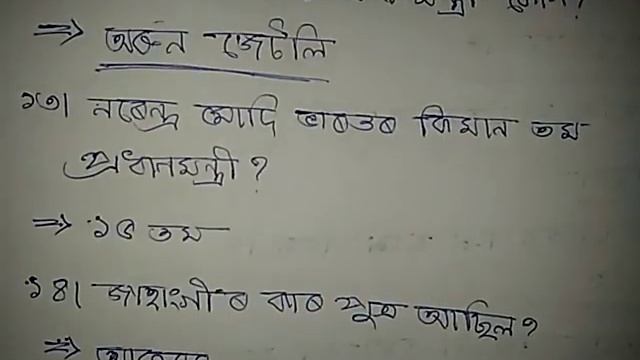 ⇒ অৰুন জেটলি
১৩। নৰেন্দ্ৰ মোদি ভাৰতৰ কিমান তম
প্ৰধানমন্ত্ৰী?
⇒ ১৫ তম
১৪। জাহাংগীৰ কাৰ পুত্ৰ আছিল?
⇒